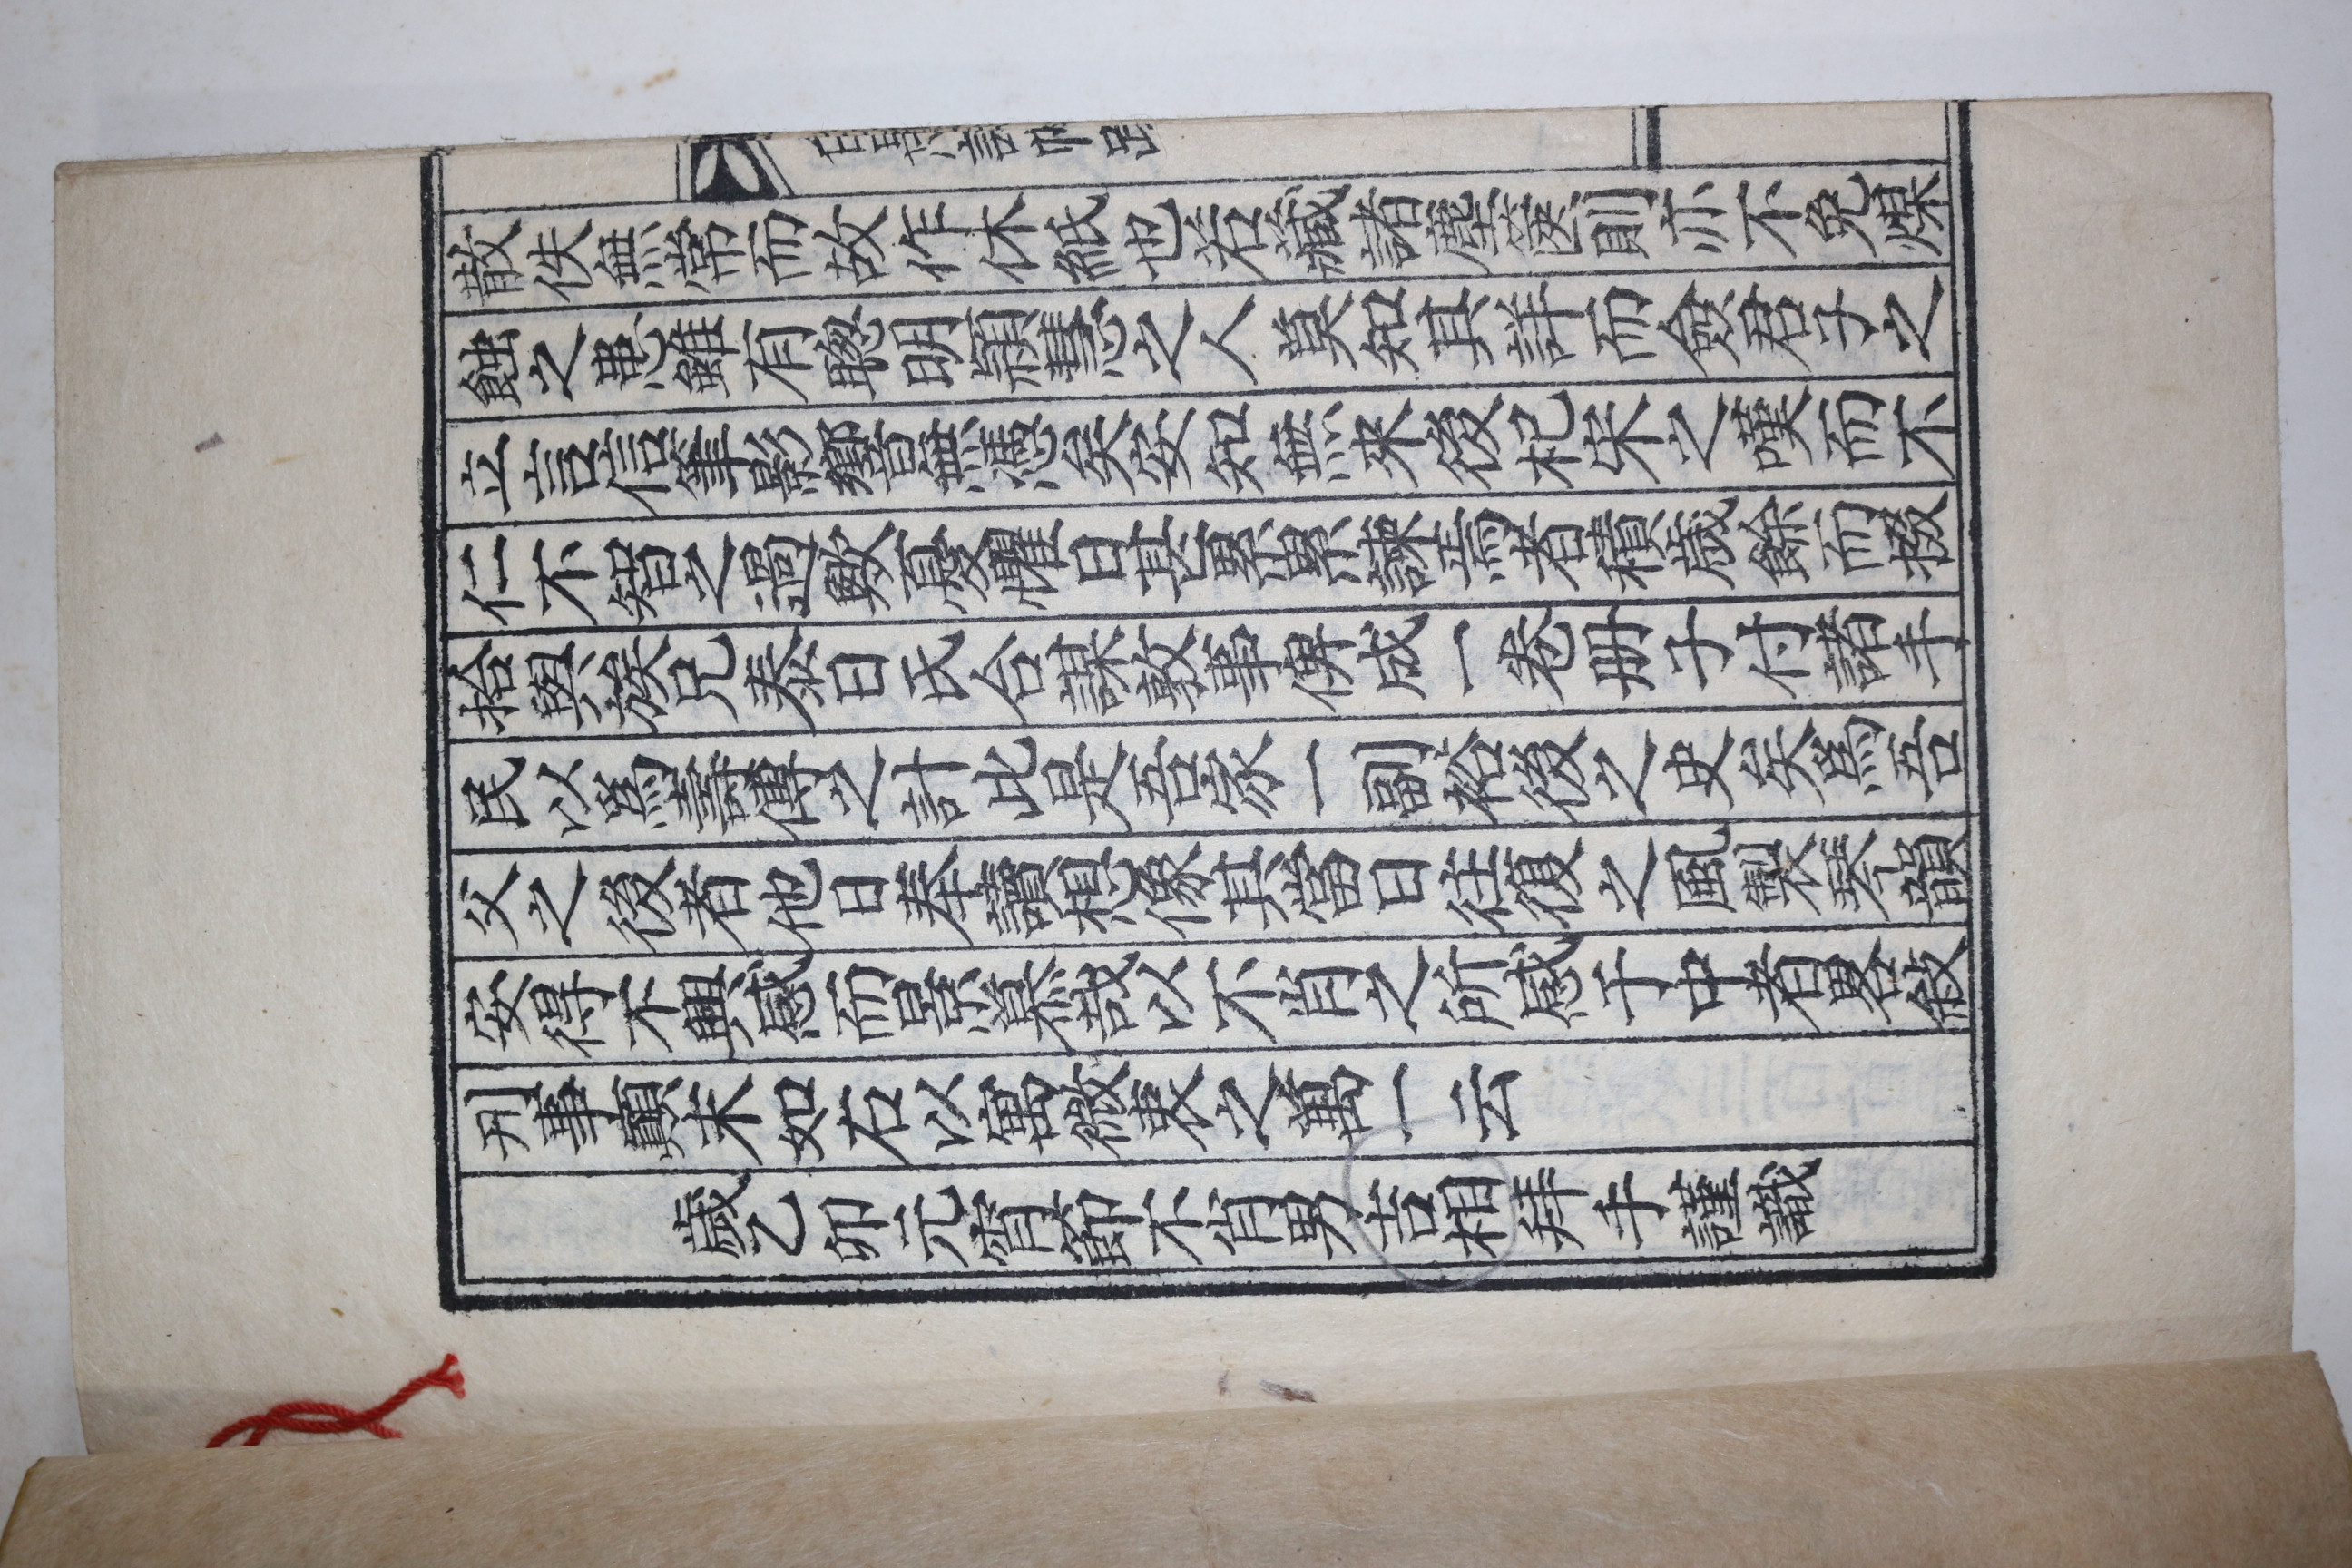 散佚無常而故作休紙也若藏諸塵篋則亦不免煤
蝕之患雖有聰明穎慧之人莫知其詳而僉君子之
立言信筆影響無憑矣安知無來後杞宋之嘆而不
仁不智之過歟憂懼日甚累累諫焉者積歲餘而掇
拾與族兄泰日氏合謀敦事俾成一卷册子付諸手
民以爲壽傳之計此是吾家一副裕後之史矣爲吾
父之後者他日奉讀想像其當日往復之風製琴韻
安得不興感而景慕哉以不肖之所感于中者畧敍
刊事顚末如右以寓微衷之萬一云
歲乙卯元宵節不肖男吉相拜手謹識